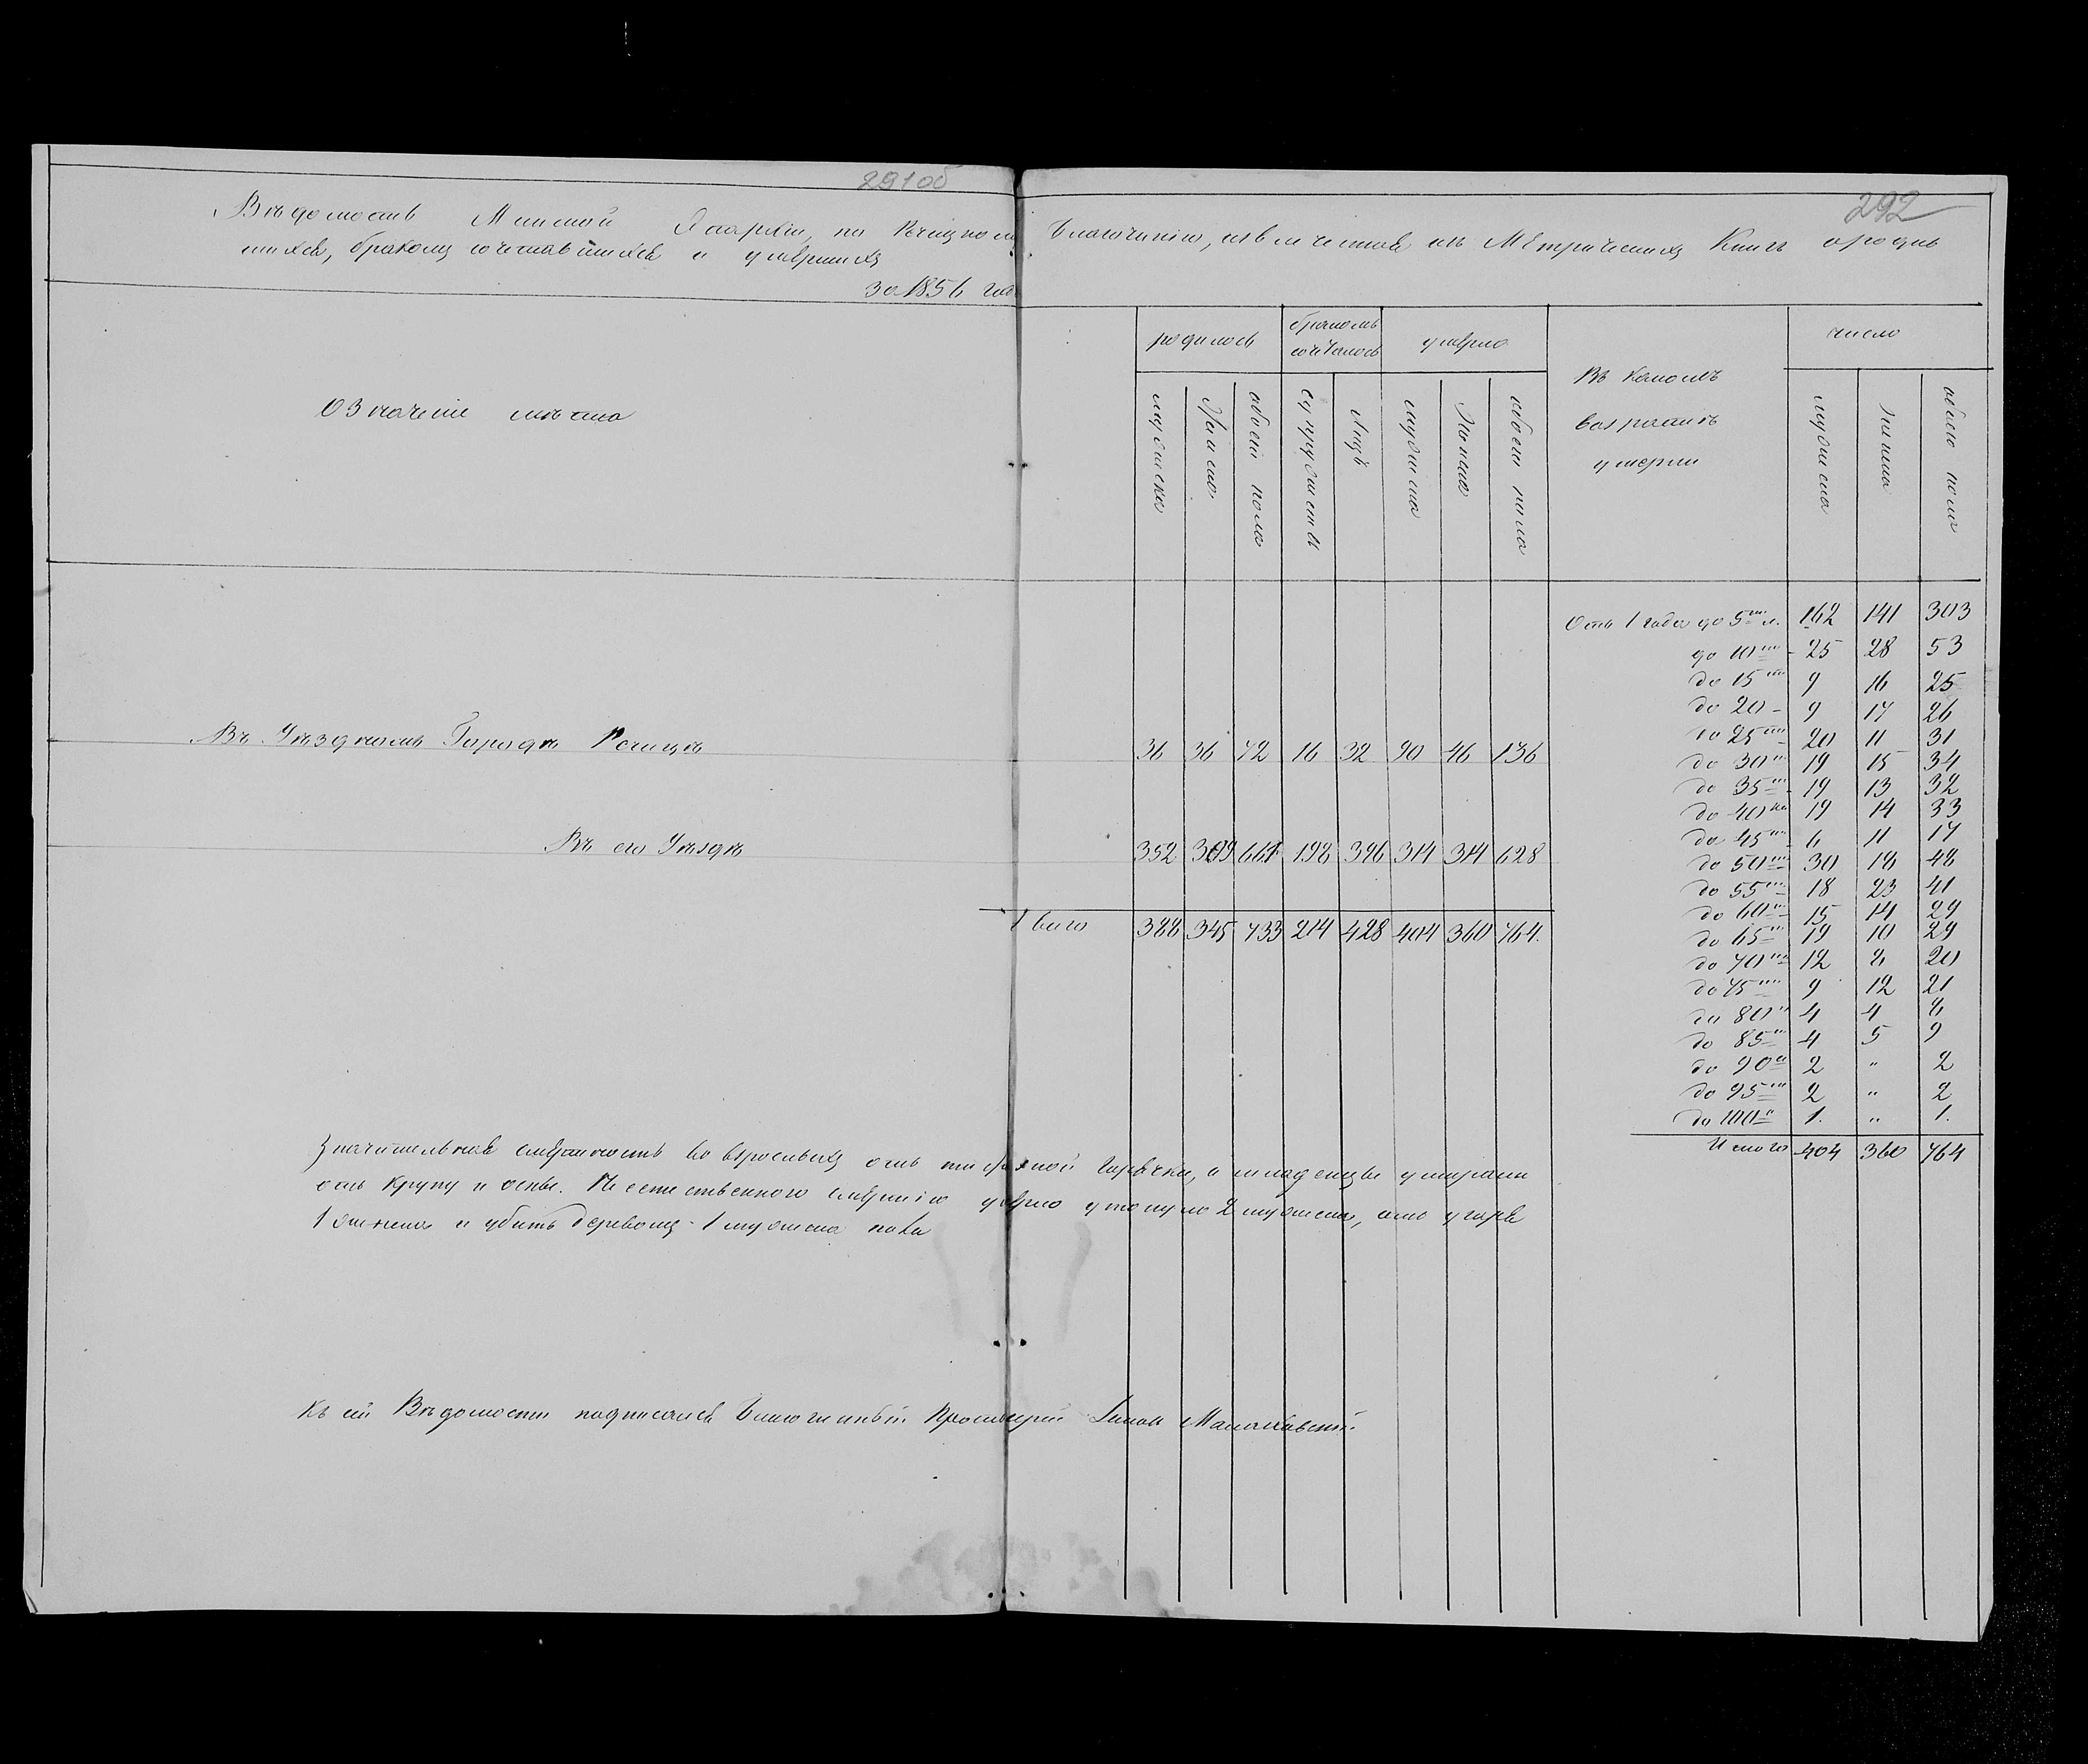 291об
292
Вѣдомость Минской Епархіи, по Рѣчицкому Благочинію, извлеченная изъ Метрическихъ Книгъ о родив
шихся, бракомъ сочетавшихся и умершихъ
За 1856 годъ
Означеніе мѣста
родилось
бракомъ сочеталось
умерло
Въ какомъ возрастѣ умерли
число
мужеска
женска
обоего пола
супружествъ
лицъ
мужеска
женска
обоего пола
мужеска
женска
обоего пола
Отъ 1 года до 5ти л. 162 141 303
до 10ти 25 28 53
до 15ти 9 16 25
до 20 9 17 26
до 25ти 20 11 31
Въ Уѣздномъ Городѣ Речицѣ 36 36 72 16 32 90 46 136
до 30ти 19 15 34
до 35ти 19 13 32
до 40ка 19 14 33
до 45ти 6 11 17
Въ его Уѣздѣ 352 309 661 198 396 314 314 628
до 50ти 30 18 48
до 55ти 18 23 41
до 60ти 15 14 29
Всего 388 345 733 214 428 404 360 764.
до 65ти 19 10 29
до 70ти 12 8 20
до 75ти 9 12 21
до 80ти 4 4 8
до 85ти 4 5 9
до 90а 2 " 2
до 95ти 2 " 2
до 100а 1. " 1.
Итого 404 360 764
Значительная смертность во взрослыхъ отъ тифозной Горячки, а младенцы умирали
отъ Крупу и оспы. Неестественною смертію умерло утонуло 2 мужеска, отъ угара
1 женска и убитъ деревомъ 1 мужеска пола
Къ сей Вѣдомости подписался Благочинный Протоіерей Малаховскій.